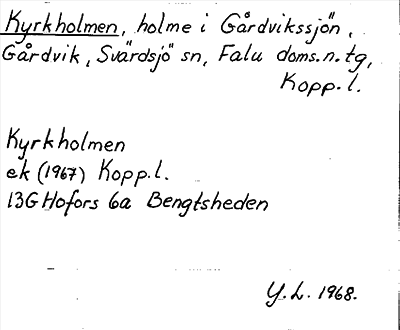 Kyrkholmen, holme i Gårdvikssjön,
Gårdvik, Svärdsjö sn, Falu doms.n.tg,
Kopp.l.
Kyrkholmen
ek (1967) Kopp.l.
13G Hofors 6a Bengtsheden
Y.L. 1968.